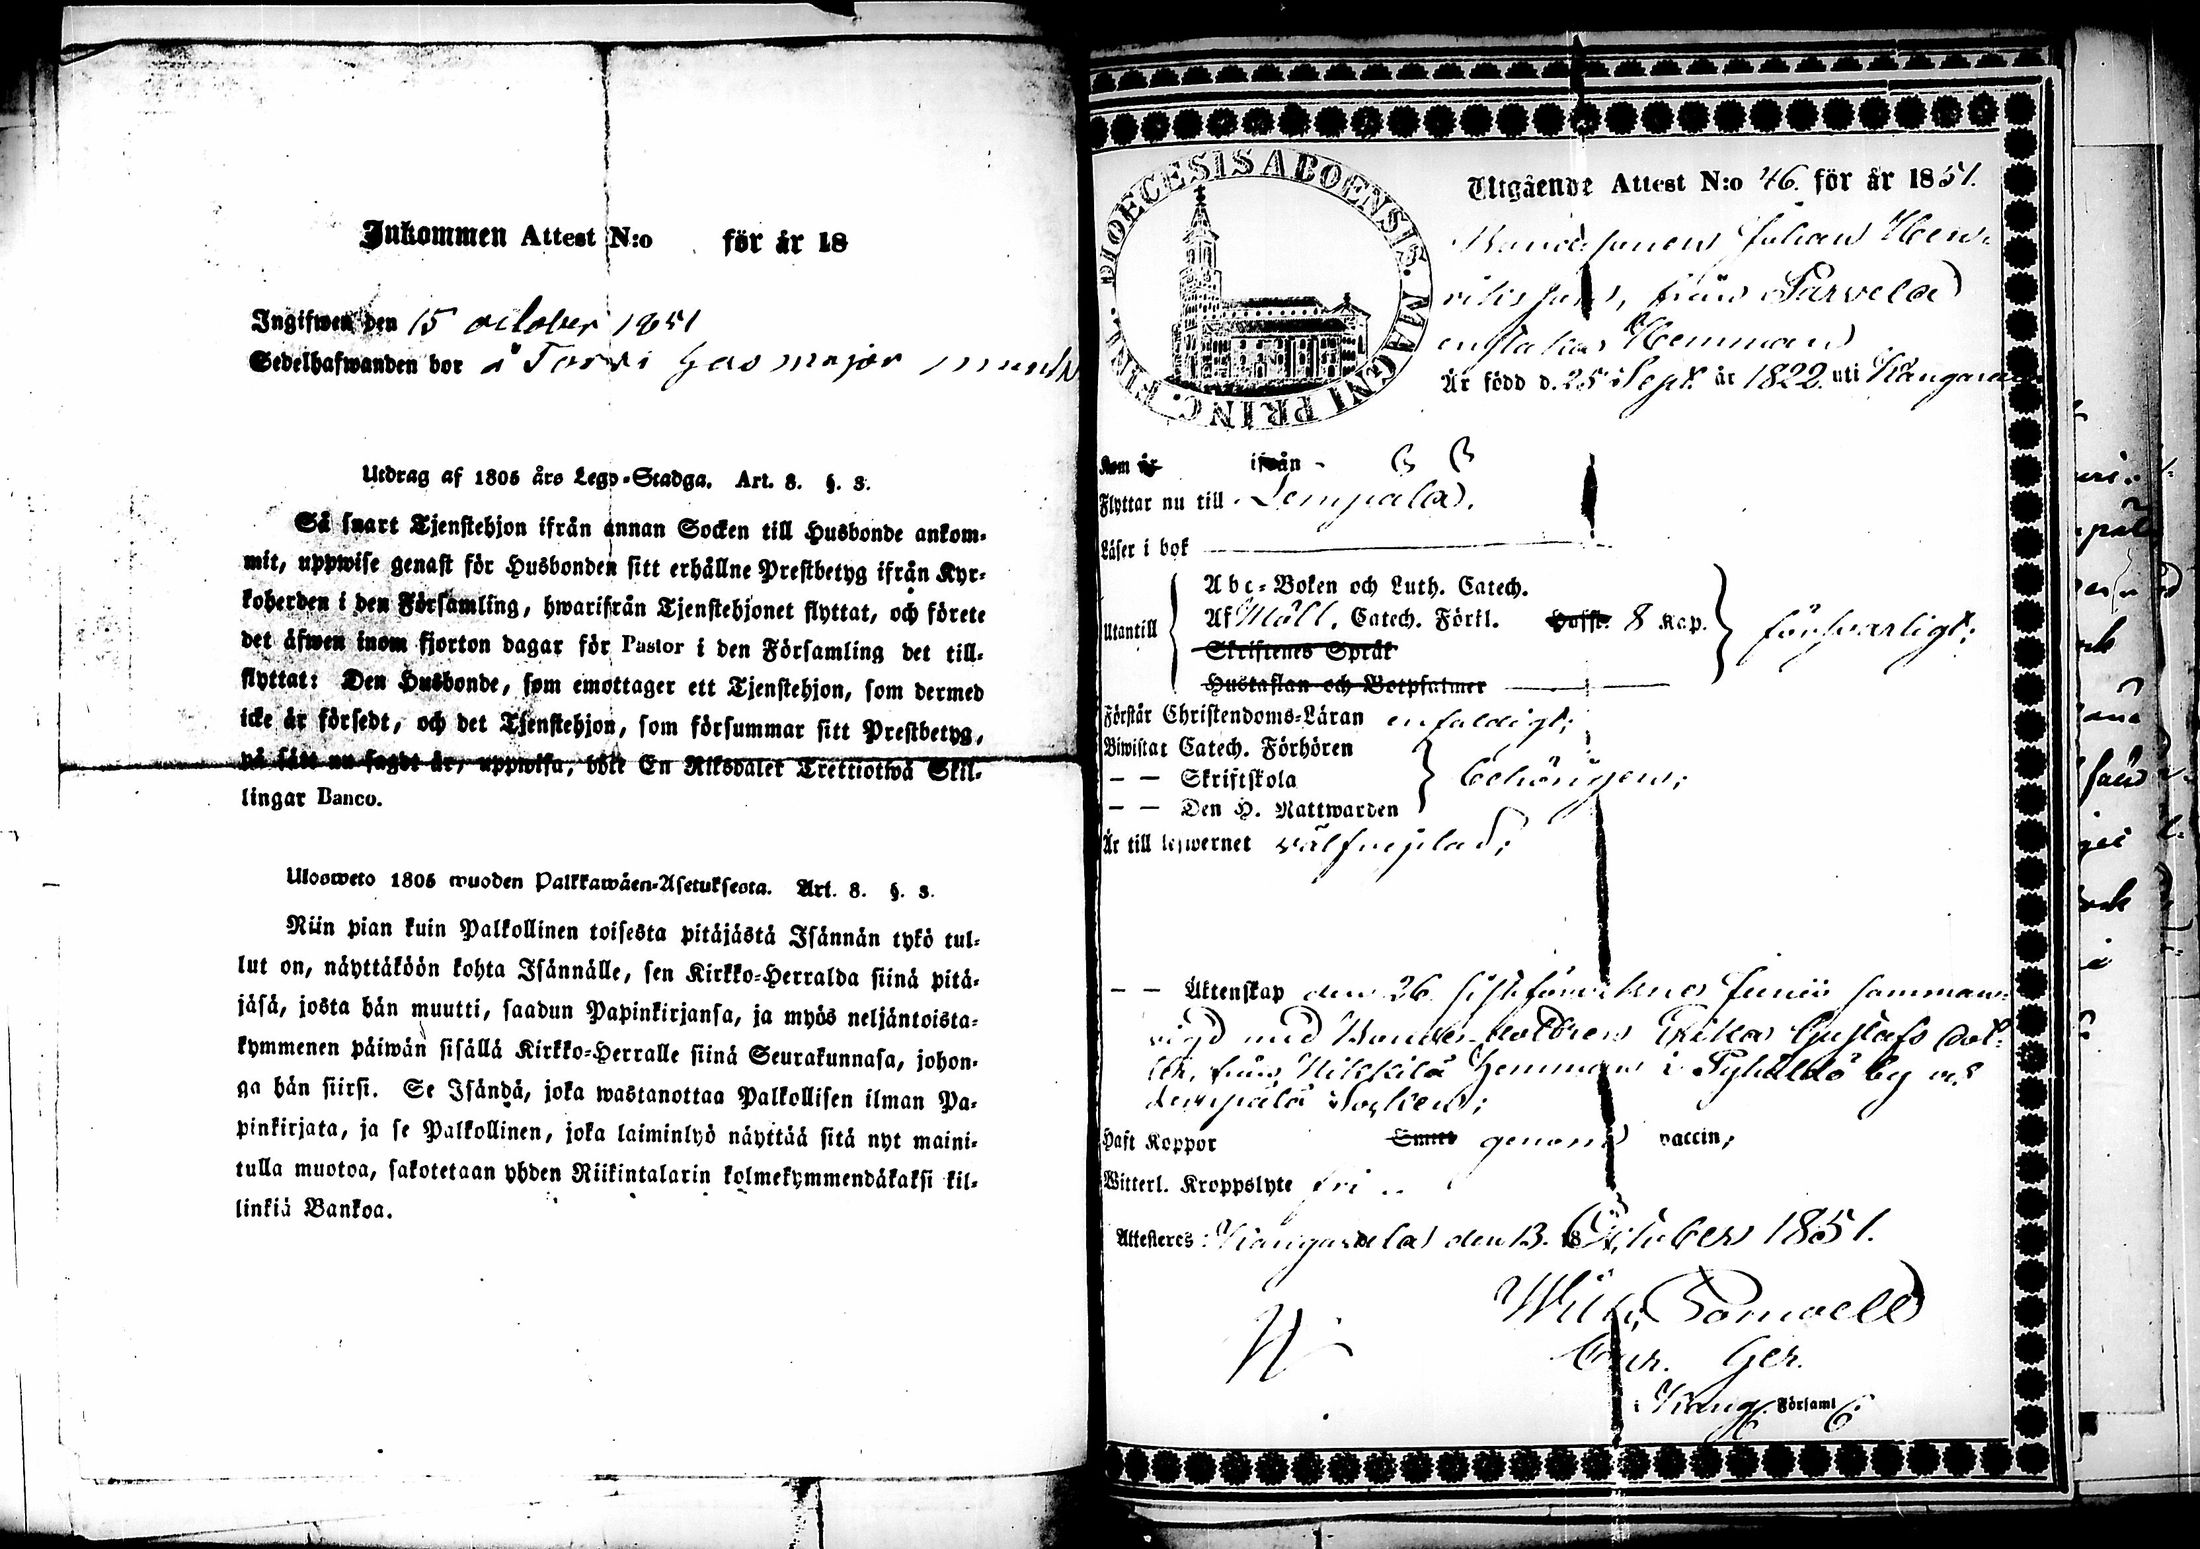 Inkommen Attest N:o för år 18
Ingifwen den 15 october 1851
Sedelhafwanden bor å Torri Gås major
Utdrag af 1805 års Lego-Stadga. Art. 8. §. 3.
Så snart Tjenstehjon ifrån annan Socken till Husbonde ankom-
mit, uppwise genast för Husbonden sitt erhållne Prestbetyg ifrån Kyr-
koherden i den Församling, hwarifrån Tjenstehjonet flyttat, och förete
det äfwen inom fjorton dagar för Pastor i den Församling det till-
flyttat: Den Husbonde, som emottager ett Tjenstehjon, som dermed
icke är försedt, och det Tjenstehjon, som försummar sitt Prestbetyg,
på sätt nu sagdt är, uppwisa, böte En Riksdaler Trettiotwå Skil-
lingar Banco.
Uloswеto 1805 wuoden Palkkawäen-Asetuksesta. Art. 8. §. 3.
Niin pian kuin Palkollinen toisesta pitäjästä Isännän tykö tul-
lut on, näyttäköön kohta Isännälle, sen Kirkko-Herralda siinä pitä-
jäsä, josta hän muutti, saadun Papinkirjansa, ja myös neljäntoista-
kymmenen päiwän sisällä Kirkko-Herralle siinä Seurakunnasa, johon-
ga hän siirsi. Se Isändä, joka wastanottaa Palkollisen ilman Pa-
pinkirjata, ja se Palkollinen, joka laiminlyö näyttää sitä nyt maini-
tulla muotoa, sakotetaan yhden Riikintalarin kolmekymmendäkaksi kil-
linkiä Bankoa.
DIOECESIS ABOENSIS. MAGNI PRINC. FINL.
Utgående Attest N:o 46. för år 1851.
Bondesonen Johan Hen-
riksson, från Parvela
enstaka Hemman
Är född d. 25 Sept. år 1822. uti Kangasala
Kom år ifrån
Flyttar nu till Lempälä.
Läser i bok
Utantill
Abc-Boken och Luth. Catech.
Af Möll. Catech. Förkl. 8 Kap. försvarligt;
Skriftenes Språk
Hustaflan och Botpsalmer
Förstår Christendoms-Läran enfaldigt;
Biwistat Catech. Förhören
— — Skriftskola behörigen;
— — Den H. Nattwarden
Är till lefwernet välfrejdad;
— — Äktenskap den 26 sistförvikne Junii samman-
vigd med Bondedottren Erika Gustafs dot-
ter, från Nikkilä Hemman i by och
Lempälä Socken;
Haft Koppor Smitt genom vaccin;
Witterl. Kroppslyte fri
Attesteres: Kangasala den 13. October 1851.
Wilh.
Cur. Ger.
i Kang. Församl